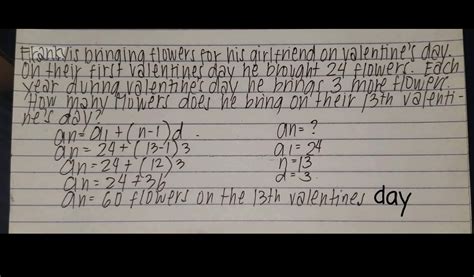 Franky is bringing flowers for his girlfriend on valentine's day.
On their first valentines day he brought 24 flowers. Each
year during valentine's day he brings 3 more flowers.
How many flowers does he bring on their 13th valenti-
ne's day?
an = a1 + (n-1)d. an = ?
an = 24 + (13-1)3 a1 = 24
an = 24 + (12)3 n = 13
an = 24 + 36 d = 3
an = 60 flowers on the 13th valentines day